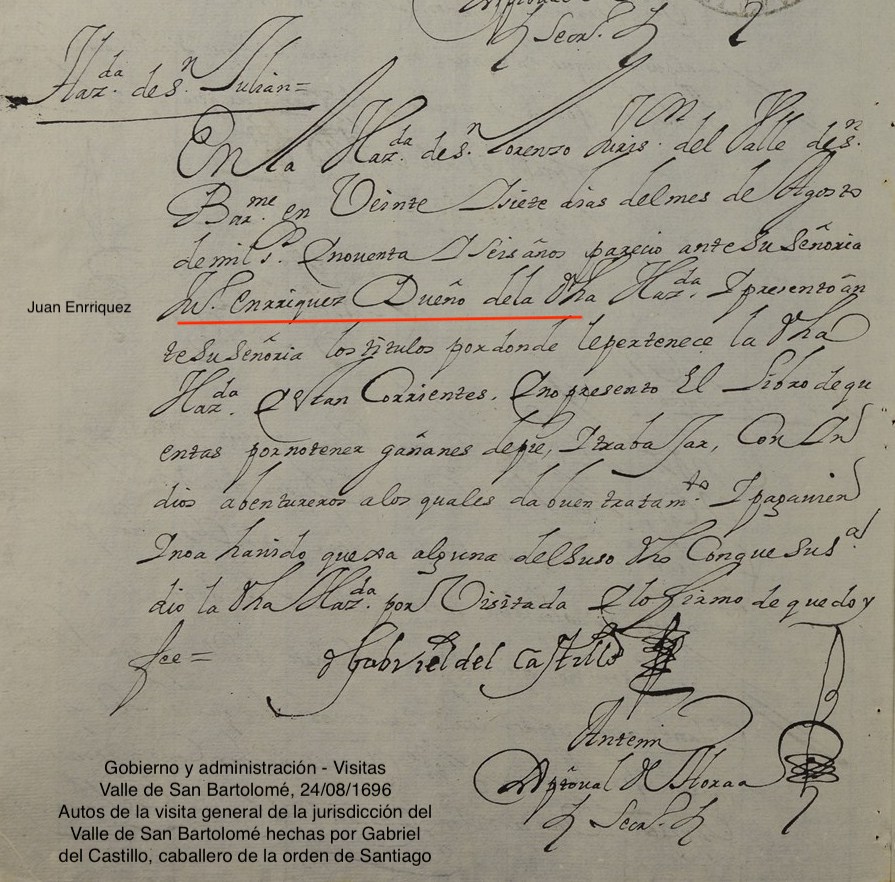 Secr.º
Haz.da de S.n Julian =
En la Haz.da de S.n Lorenzo Juris.on del Valle de S.n
Bar.me en Veinte Isiete dias del mes de Agosto
de mil s.s Enoventa Iseis años parecio ante Su Señoria
Ju.º Enrriquez Dueño dela dha Haz.da Ipresentó an
Juan Enrriquez
te Su Señoria los titulos por donde le pertenece la dha
Haz.da Estan Corrientes, Eno presento El Libro de qu
entas por notener gañanes depie, Itrabajar, Con In
dios abentureros alos quales da buen tratam.to Ipagamen
Inoa havido quexa alguna del suso dho Conque Su S.a
dio la dha Haz.da por Visitada Elo firmo de que doy
fee =
D Gabriel del Castillo
Antemi
Xptoual de
Secr.º
Gobierno y administración - Visitas
Valle de San Bartolomé, 24/08/1696
Autos de la visita general de la jurisdicción del
Valle de San Bartolomé hechas por Gabriel
del Castillo, caballero de la orden de Santiago